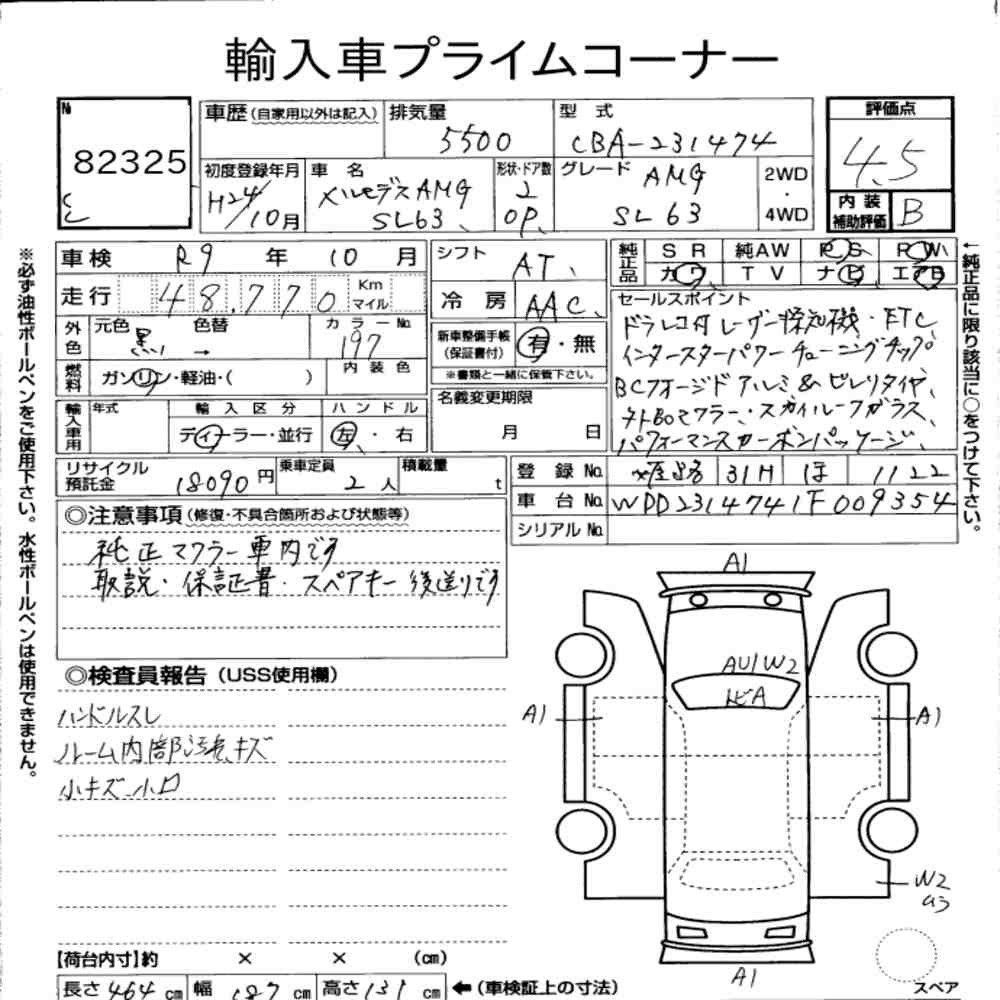 輸入車プライムコーナー
№
82325
車歴(自家用以外は記入)
排気量
5500
型式
CBA-231474
評価点
4.5
初度登録年月
H24/10月
車名
メルセデスAMG
SL63
形状・ドア数
2
OP.
グレード
AMG
SL63
2WD
・
4WD
内装
補助評価
B
車検 R9年10月
走行 48,770 Km
マイル
外色
元色 黒 色替 →
カラーNo.
197
燃料
ガソリン・軽油・( )
内装色
輸入車用
年式
輸入区分
ディーラー・並行
ハンドル
左・右
シフト AT、
冷房 AAC、
新車整備手帳
(保証書付)
有・無
※書類と一緒に保管下さい。
名義変更期限
月 日
純正品
SR 純AW PS PW
カワ TV ナビ エアB
セールスポイント
ドラレコ付レーザー探知機・ETC
インタースターパワーチューニングチップ
BCフォージドアルミ&ピレリタイヤ、
チトBoマフラー、スカイルーフガラス、
パフォーマンスカーボンパッケージ、
リサイクル
預託金
18090円
乗車定員
2人
積載量
t
登録No. 姫路 31H ほ 1122
車台No. WDD2314741F009354
シリアルNo.
◎注意事項(修復・不具合箇所および状態等)
純正マフラー車内です
取説・保証書・スペアキー後送りです
◎検査員報告(USS使用欄)
ハンドルスレ
ルーム内部汚れ、キズ
小キズ小凹
A1
AU1W2
トビA
A1
A1
W2
A1
スペア
【荷台内寸】約 × × (cm)
長さ464cm 幅187cm 高さ131cm ←(車検証上の寸法)
※必ず油性ボールペンをご使用下さい。水性ボールペンは使用できません。
←純正品に限り該当に○をつけて下さい。